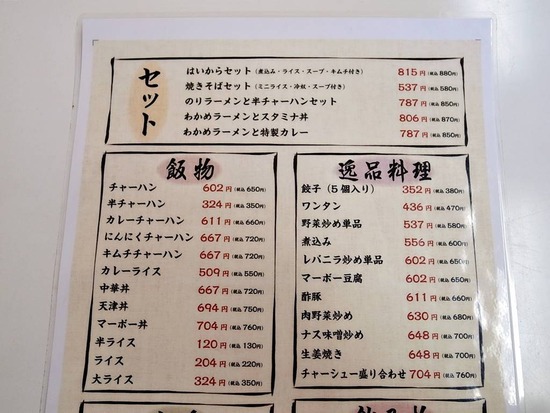 セット
はいからセット（煮込み・ライス・スープ・キムチ付き） 815円（税込 880円）
焼きそばセット（ミニライス・冷奴・スープ付き） 537円（税込 580円）
のりラーメンと半チャーハンセット 787円（税込 850円）
わかめラーメンとスタミナ丼 806円（税込 870円）
わかめラーメンと特製カレー 787円（税込 850円）
飯物
チャーハン 602円（税込 650円）
半チャーハン 324円（税込 350円）
カレーチャーハン 611円（税込 660円）
にんにくチャーハン 667円（税込 720円）
キムチチャーハン 667円（税込 720円）
カレーライス 509円（税込 550円）
中華丼 667円（税込 720円）
天津丼 694円（税込 750円）
マーボー丼 704円（税込 760円）
半ライス 120円（税込 130円）
ライス 204円（税込 220円）
大ライス 324円（税込 350円）
逸品料理
餃子（５個入り） 352円（税込 380円）
ワンタン 436円（税込 470円）
野菜炒め単品 537円（税込 580円）
煮込み 556円（税込 600円）
レバニラ炒め単品 602円（税込 650円）
マーボー豆腐 602円（税込 650円）
酢豚 611円（税込 660円）
肉野菜炒め 630円（税込 680円）
ナス味噌炒め 648円（税込 700円）
生姜焼き 648円（税込 700円）
チャーシュー盛り合わせ 704円（税込 760円）